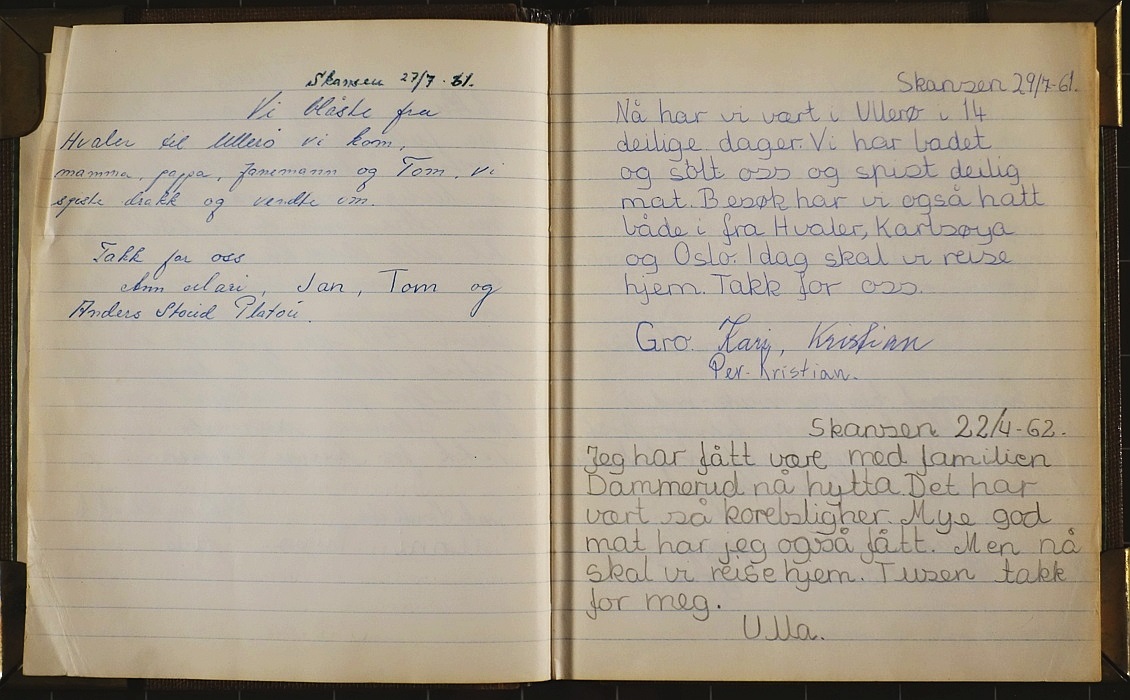 Skansen 27/7-61.
Vi blåste fra
Hvaler til Ullerö vi kom,
mamma, pappa, Janemann og Tom, vi
spiste drakk og vendte om
Takk for oss
Ann Mari, Jan, Tom og
Anders Stoud Platou.
Skansen 29/7-61.
Nå har vi vært i Ullerø i 14
deilige dager. Vi har badet
og solt oss og spist deilig
mat. Besøk har vi også hatt
både i fra Hvaler, Karlsøya
og Oslo. Idag skal vi reise
hjem. Takk for oss.
Gro. Kari, Kristian
Per-Kristian.
Skansen 22/4-62.
Jeg har fått være med familien
Dammerud nå hytta. Det har
vært så korebsligher. Mye god
mat har jeg også fått. Men nå
skal vi reise hjem. Tusen takk
for meg.
Ulla.